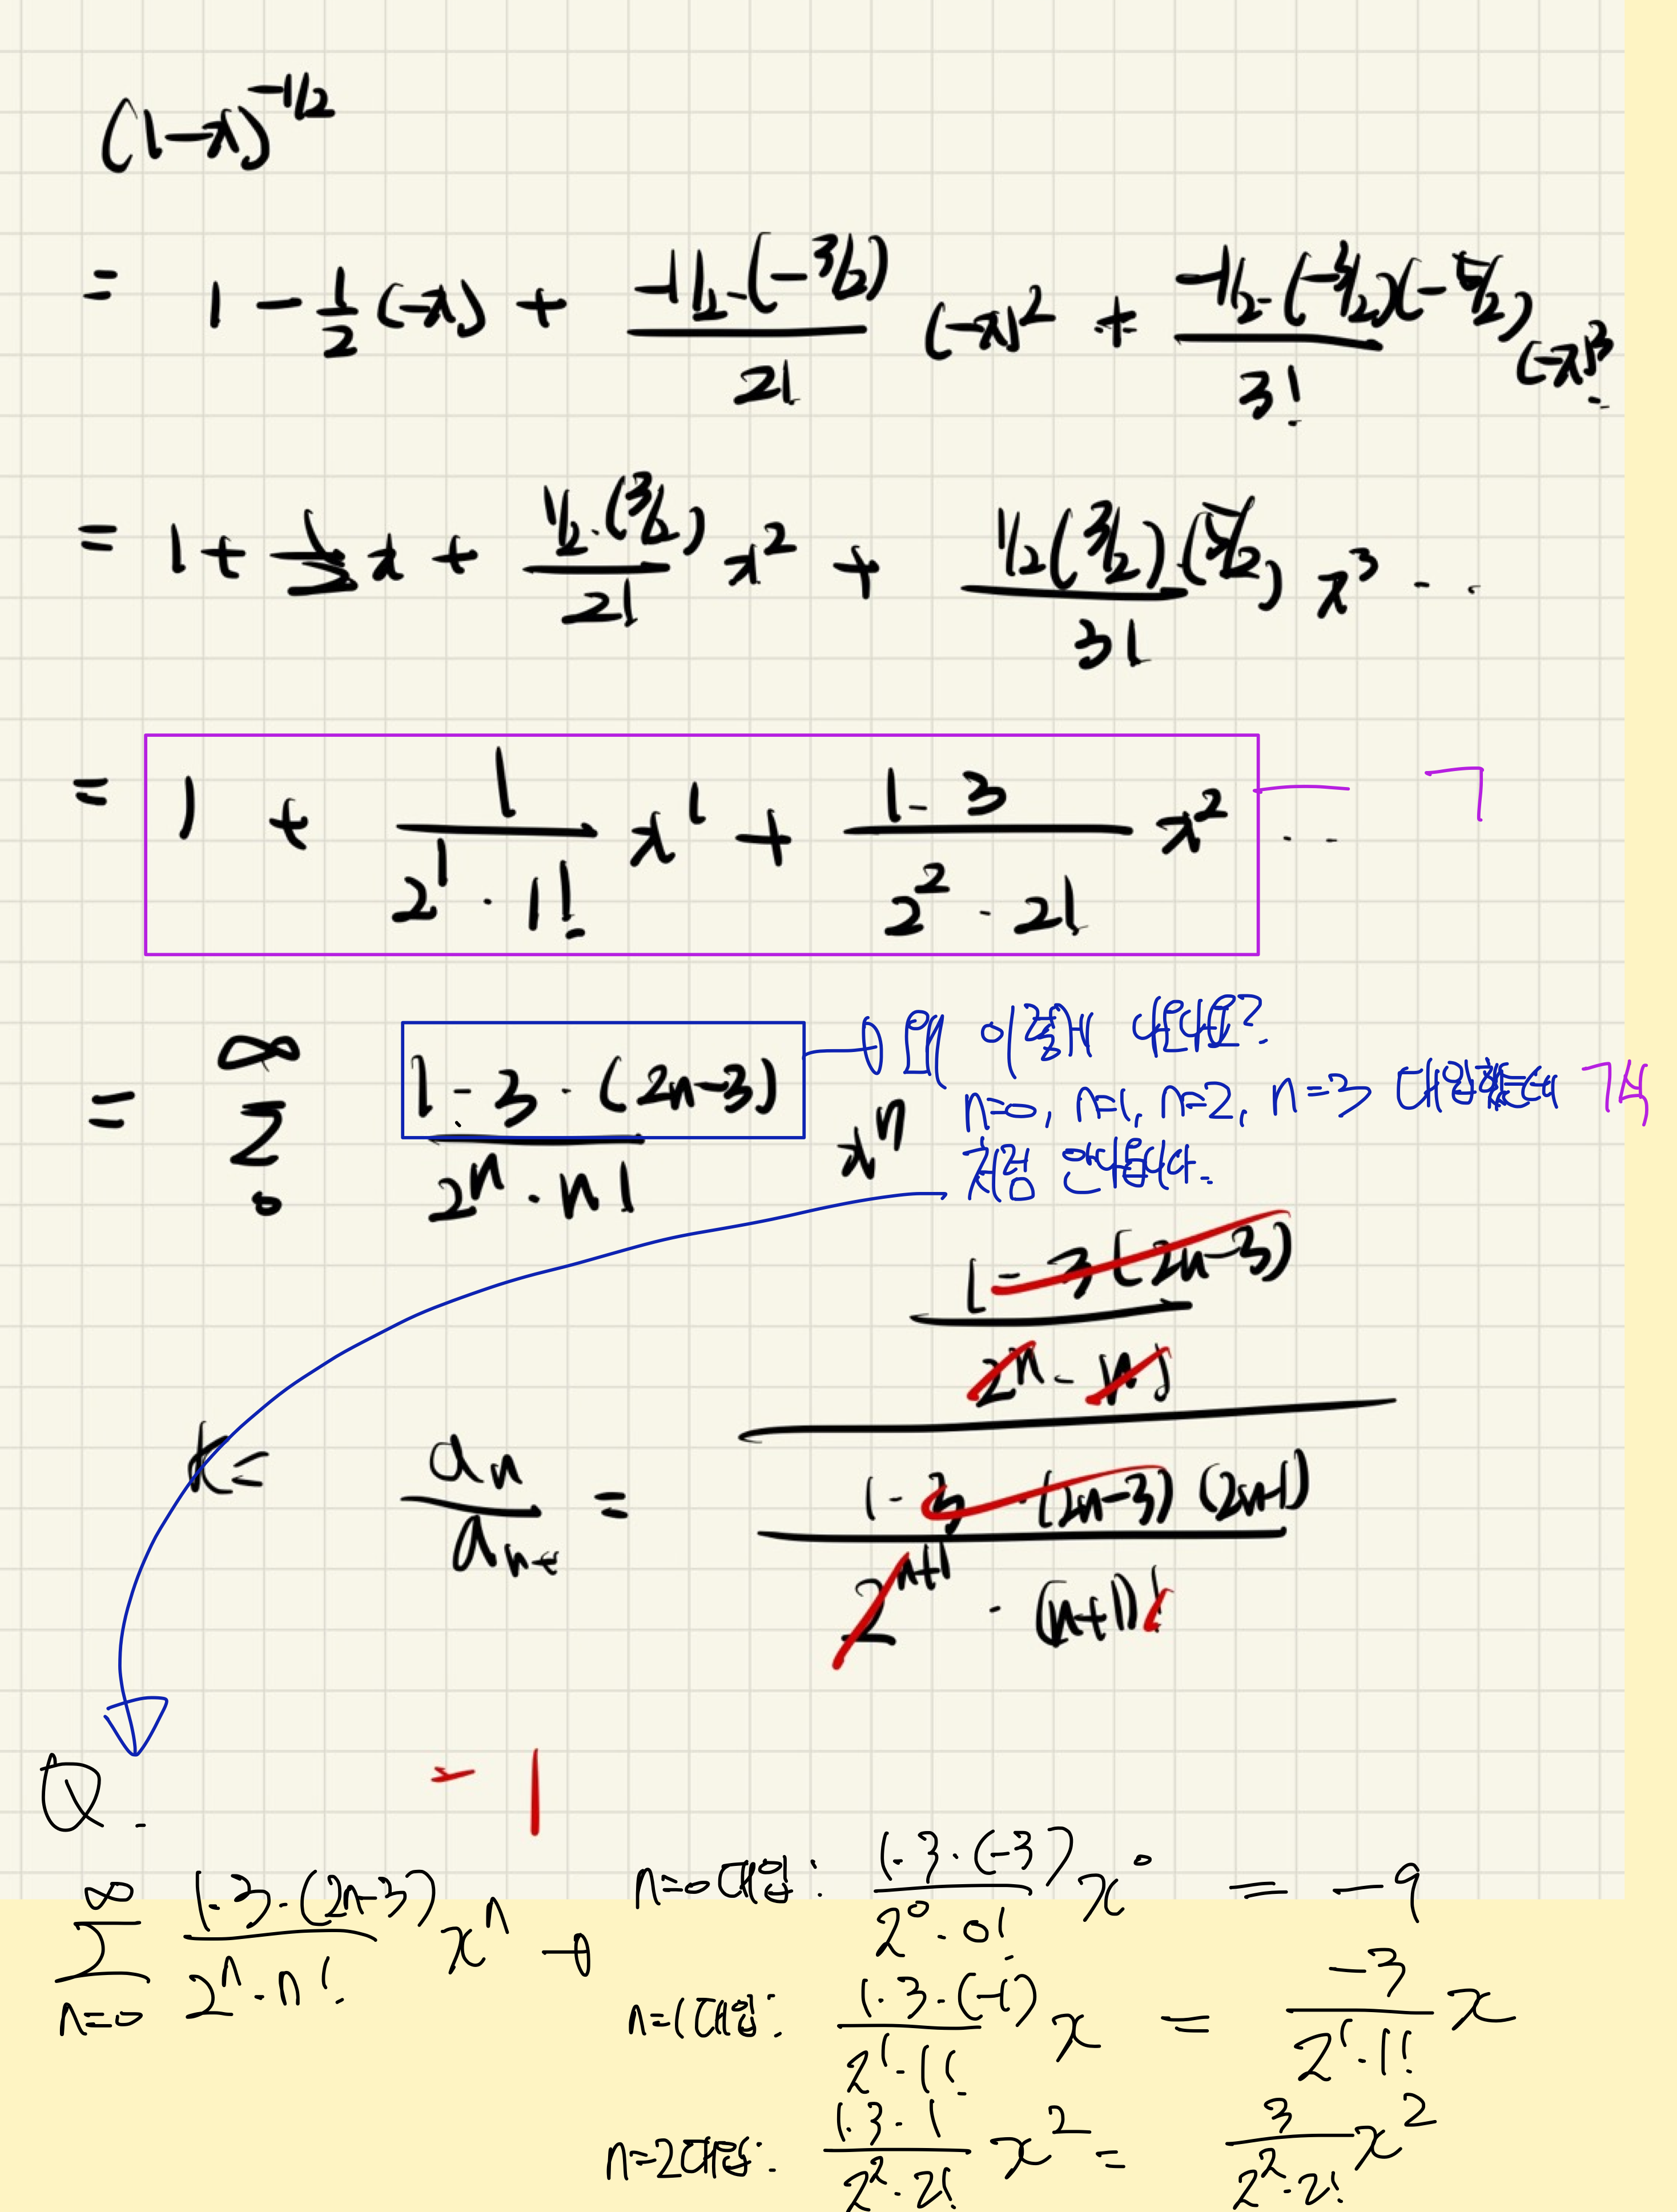 (1-x)^{-1/2}
= 1 - \frac{1}{2}(-x) + \frac{-1/2 \cdot (-3/2)}{2!} (-x)^2 + \frac{-1/2 \cdot (-3/2)(-5/2)}{3!} (-x)^3 ..
= 1 + \frac{1}{2}x + \frac{1/2 \cdot (3/2)}{2!} x^2 + \frac{1/2(3/2) \cdot (5/2)}{3!} x^3 ..
= 1 + \frac{1}{2^1 \cdot 1!} x^1 + \frac{1 \cdot 3}{2^2 \cdot 2!} x^2 .. ㄱ
= \sum_0^∞ \frac{1 \cdot 3 \cdot (2n-3)}{2^n \cdot n!} x^n
→ 왜 이렇게 나오나요?
n=0, n=1, n=2, n=3 대입했을때 ㄱ식
처럼 안나옵니다.
\frac{a_n}{a_{n+}} = \frac{\frac{1 \cdot 3 (2n-3)}{2^n \cdot n!}}{\frac{1 \cdot 3 \cdot (2n-3)(2n-1)}{2^{n+1} \cdot (n+1)!}}
- 1
Q.
\sum_{n=0}^∞ \frac{1 \cdot 3 \cdot (2n-3)}{2^n \cdot n!} x^n →
n=0 대입: \frac{1 \cdot 3 \cdot (-3)}{2^0 \cdot 0!} x^0 = -9
n=1 대입: \frac{1 \cdot 3 \cdot (-1)}{2^1 \cdot 1!} x = \frac{-3}{2^1 \cdot 1!} x
n=2 대입: \frac{1 \cdot 3 \cdot 1}{2^2 \cdot 2!} x^2 = \frac{3}{2^2 \cdot 2!} x^2